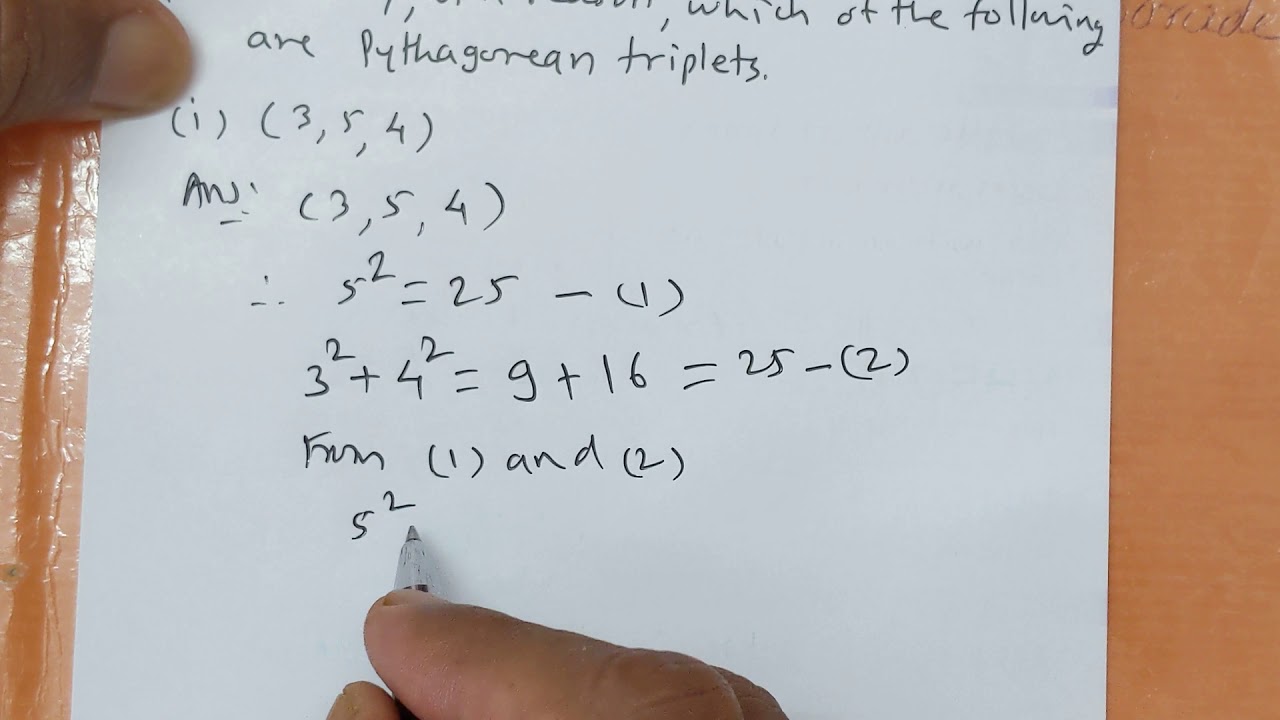 which of the following
are Pythagorean triplets.
(i) (3, 5, 4)
Ans: (3, 5, 4)
∴ 5² = 25 – (1)
3² + 4² = 9 + 16 = 25 – (2)
From (1) and (2)
5²